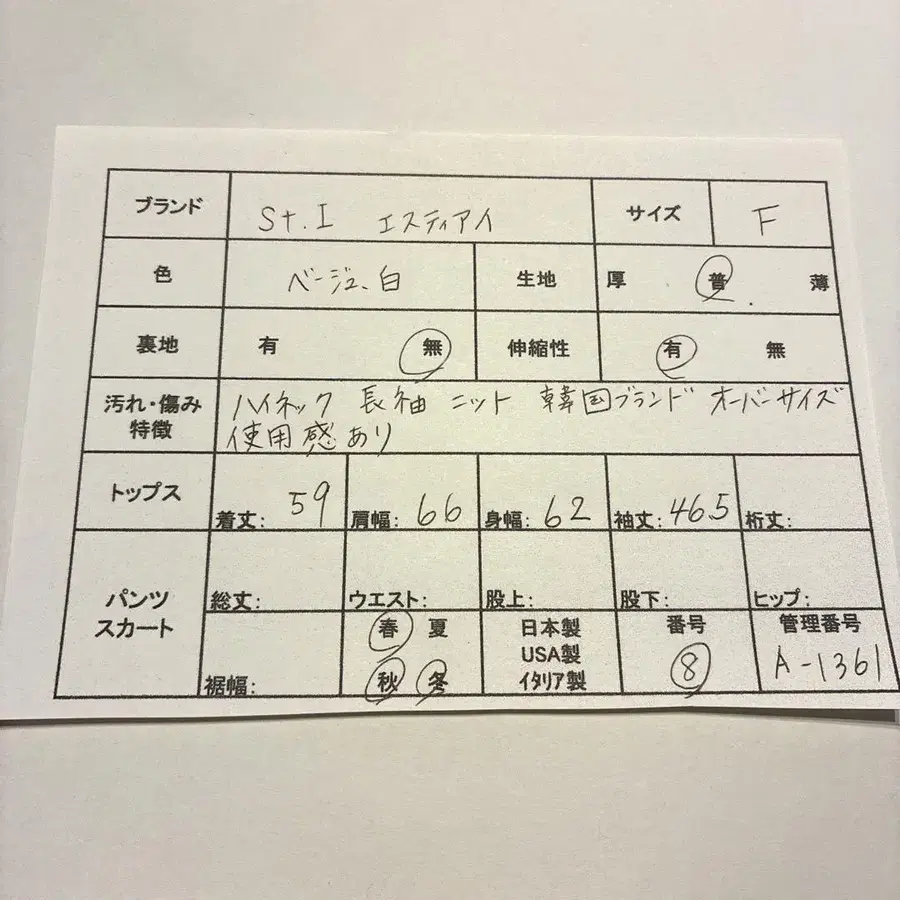 ブランド St.I エスティアイ サイズ F
色 ベージュ、白 生地 厚 普 薄
裏地 有 無 伸縮性 有 無
汚れ・傷み ハイネック 長袖 ニット 韓国ブランド オーバーサイズ
特徴 使用感あり
トップス 着丈: 59 肩幅: 66 身幅: 62 袖丈: 46.5 裄丈:
パンツ 総丈: ウエスト: 股上: 股下: ヒップ:
スカート 春 夏 日本製 番号 管理番号
USA製
裾幅: 秋 冬 イタリア製 8 A-1361